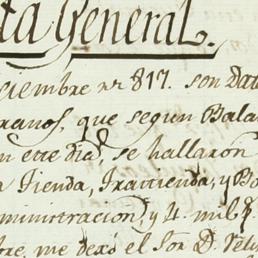 ta General.
ciembre de 1817. son Data
ranos, que segun Bala
n este dia, se hallaron
a Tienda, Trastienda, y Bo
ministracion, y 4. mil p.
bre, me dexó el Sor D. Feli